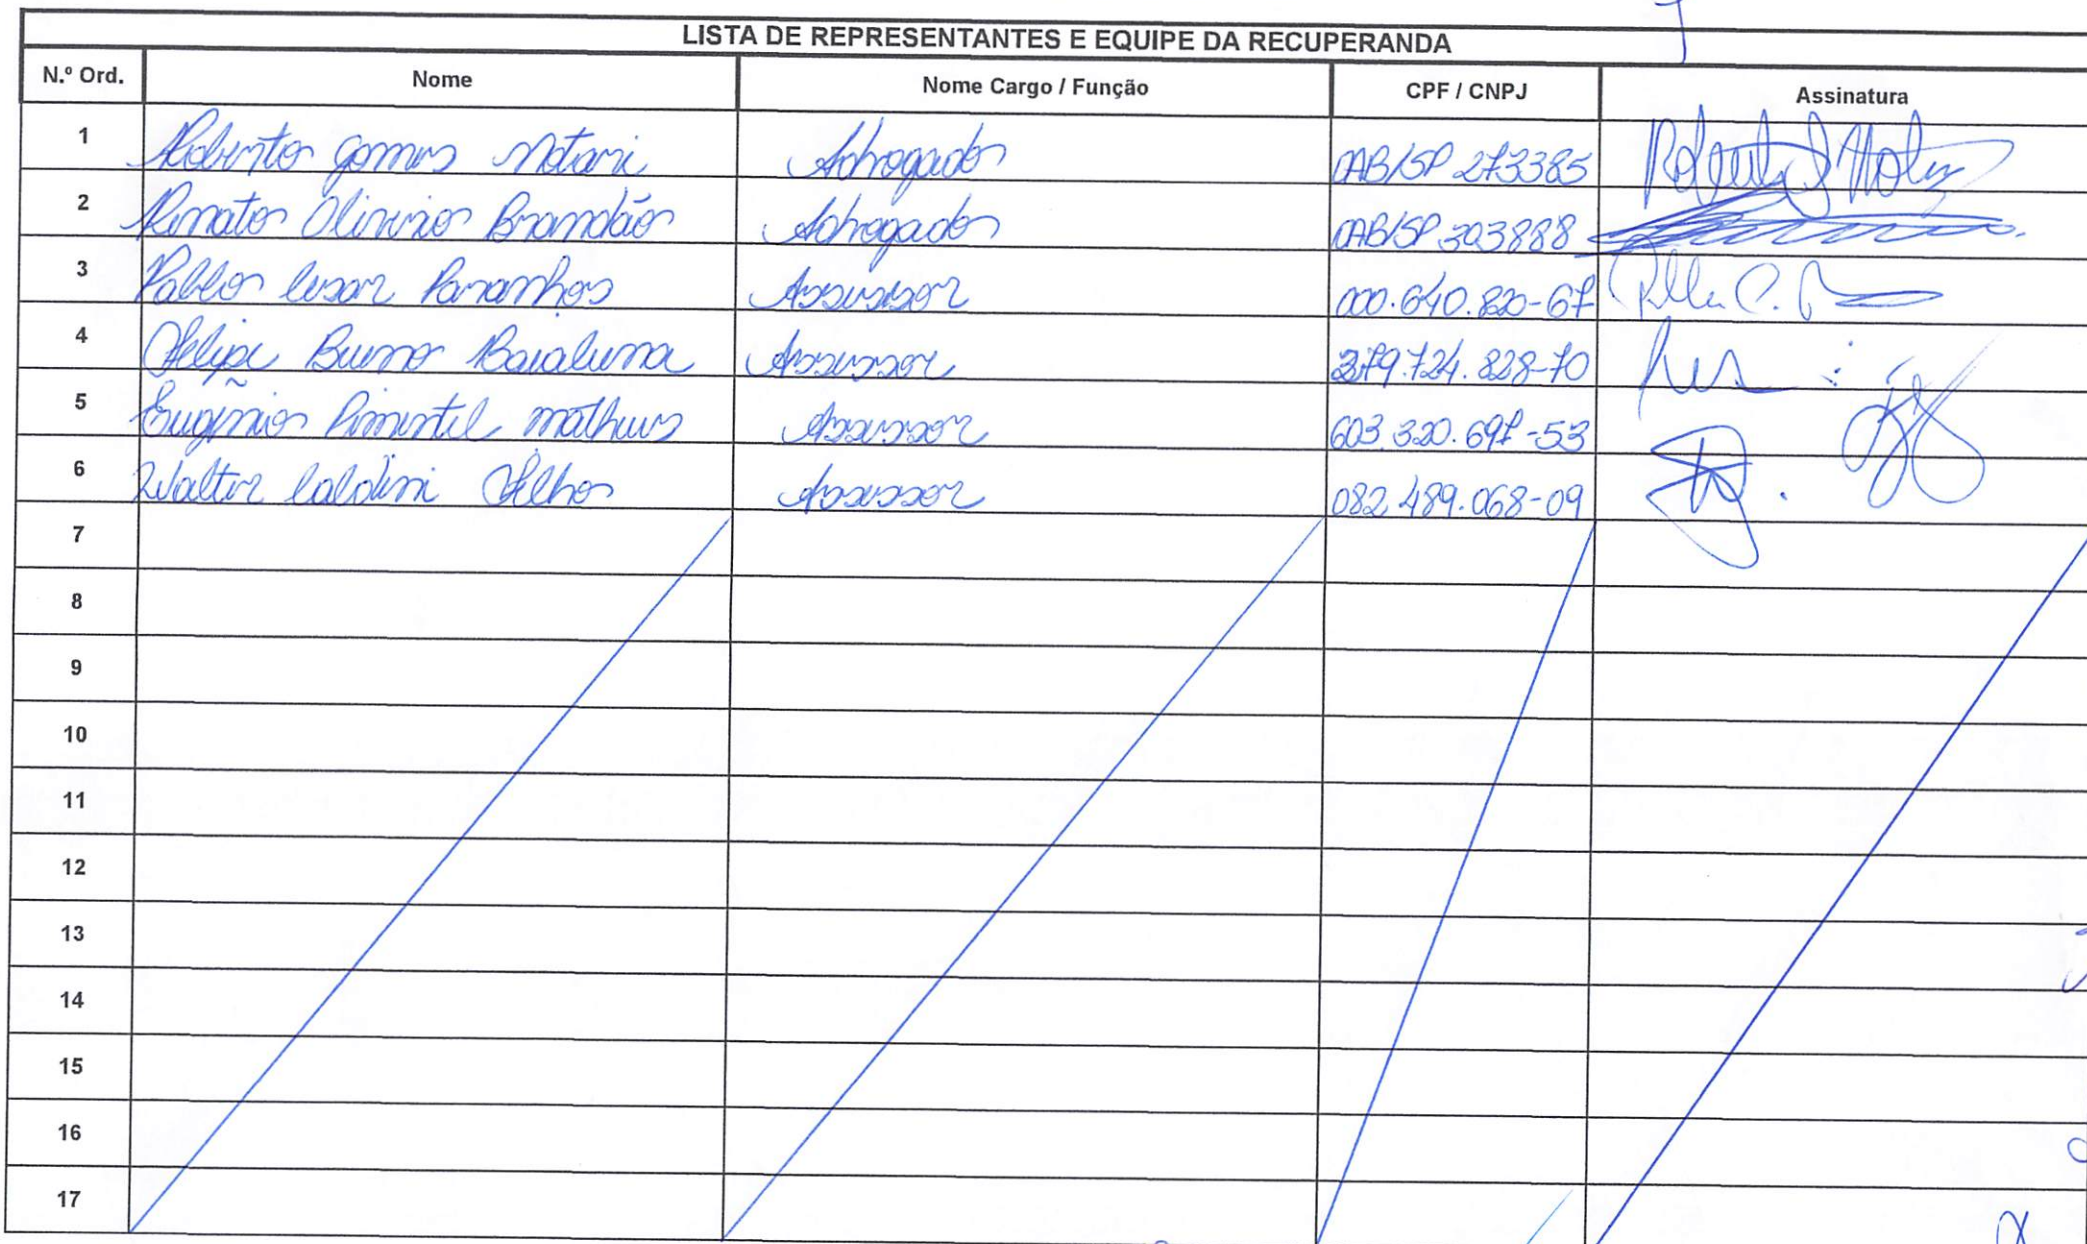 LISTA DE REPRESENTANTES E EQUIPE DA RECUPERANDA
N.º Ord. Nome Nome Cargo / Função CPF / CNPJ Assinatura
1 Roberto Gomes Notari Advogado OAB/SP 273385
2 Renato Olivério Brandão Advogado OAB/SP 303888
3 Pablo Cesar Paranhos Assessor 000.640.820-67
4 Felipe Bueno Assessor 379.724.828-70
5 Eugênio Pimentel Matheus Assessor 603.320.697-53
6 Walter Caldini Filho Assessor 082.489.068-09
7
8
9
10
11
12
13
14
15
16
17